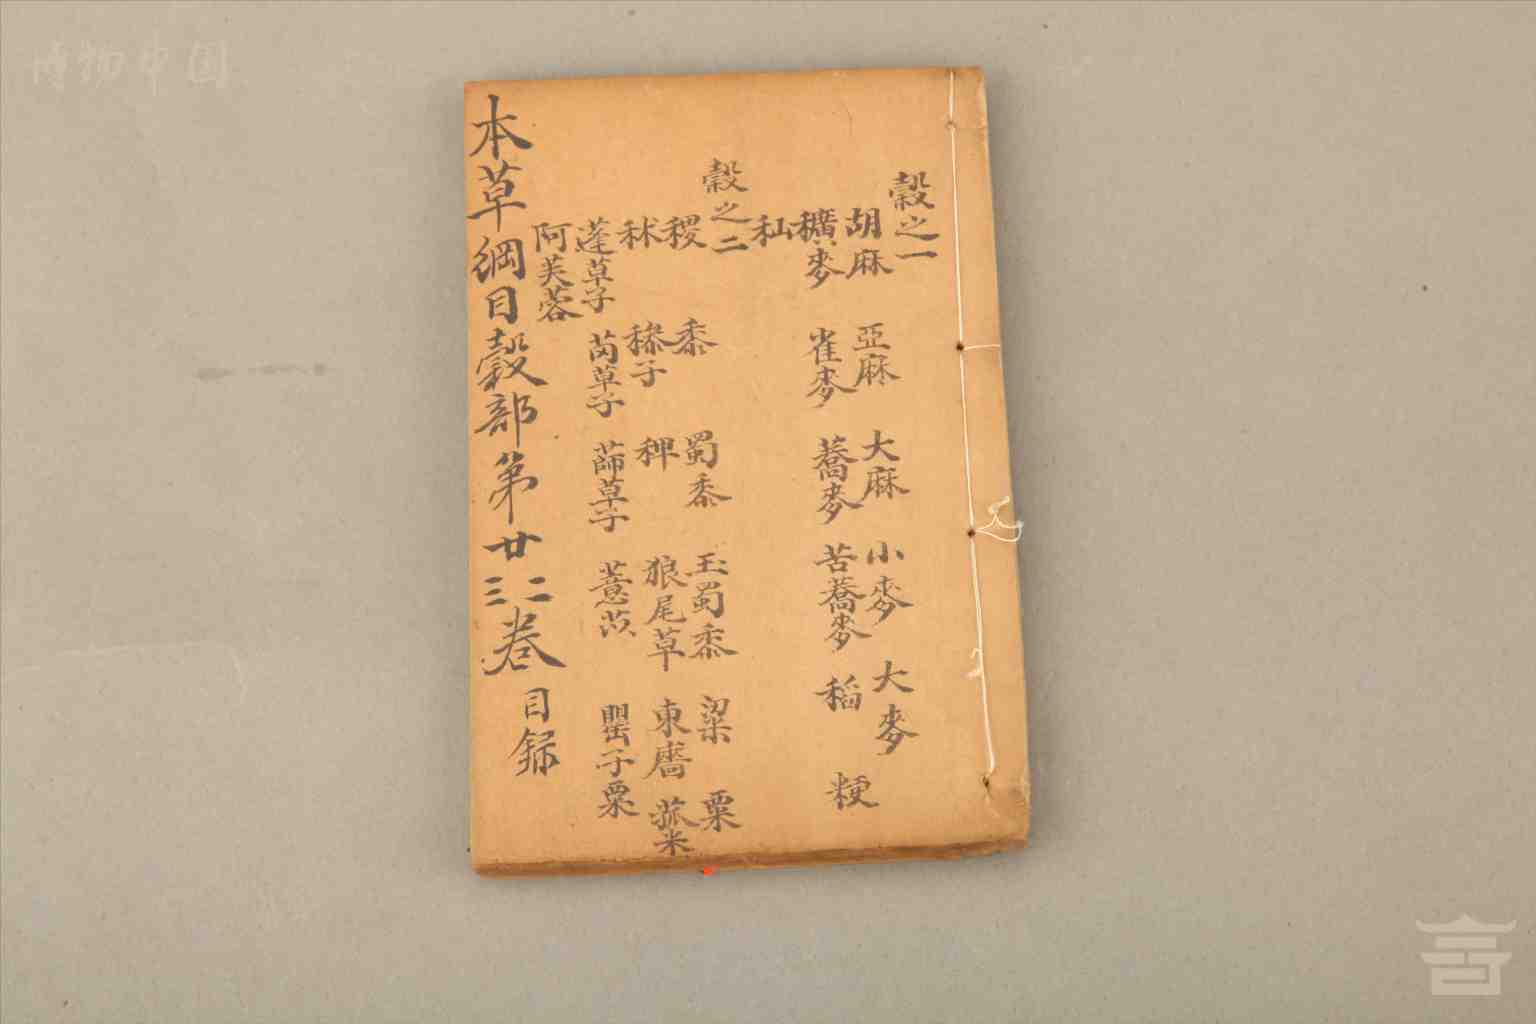 穀之一
胡麻 亞麻 大麻 小麥 大麥
穬麥 雀麥 蕎麥 苦蕎麥 稻 粳
秈
穀之二
稷 黍 蜀黍 玉蜀黍 粱 粟
秫 穇子 稗 狼尾草 東廧 菰米
蓬草子 䒦草子 蒒草子 薏苡 罌子粟
阿芙蓉
本草綱目穀部第廿二三卷目録
博物中国